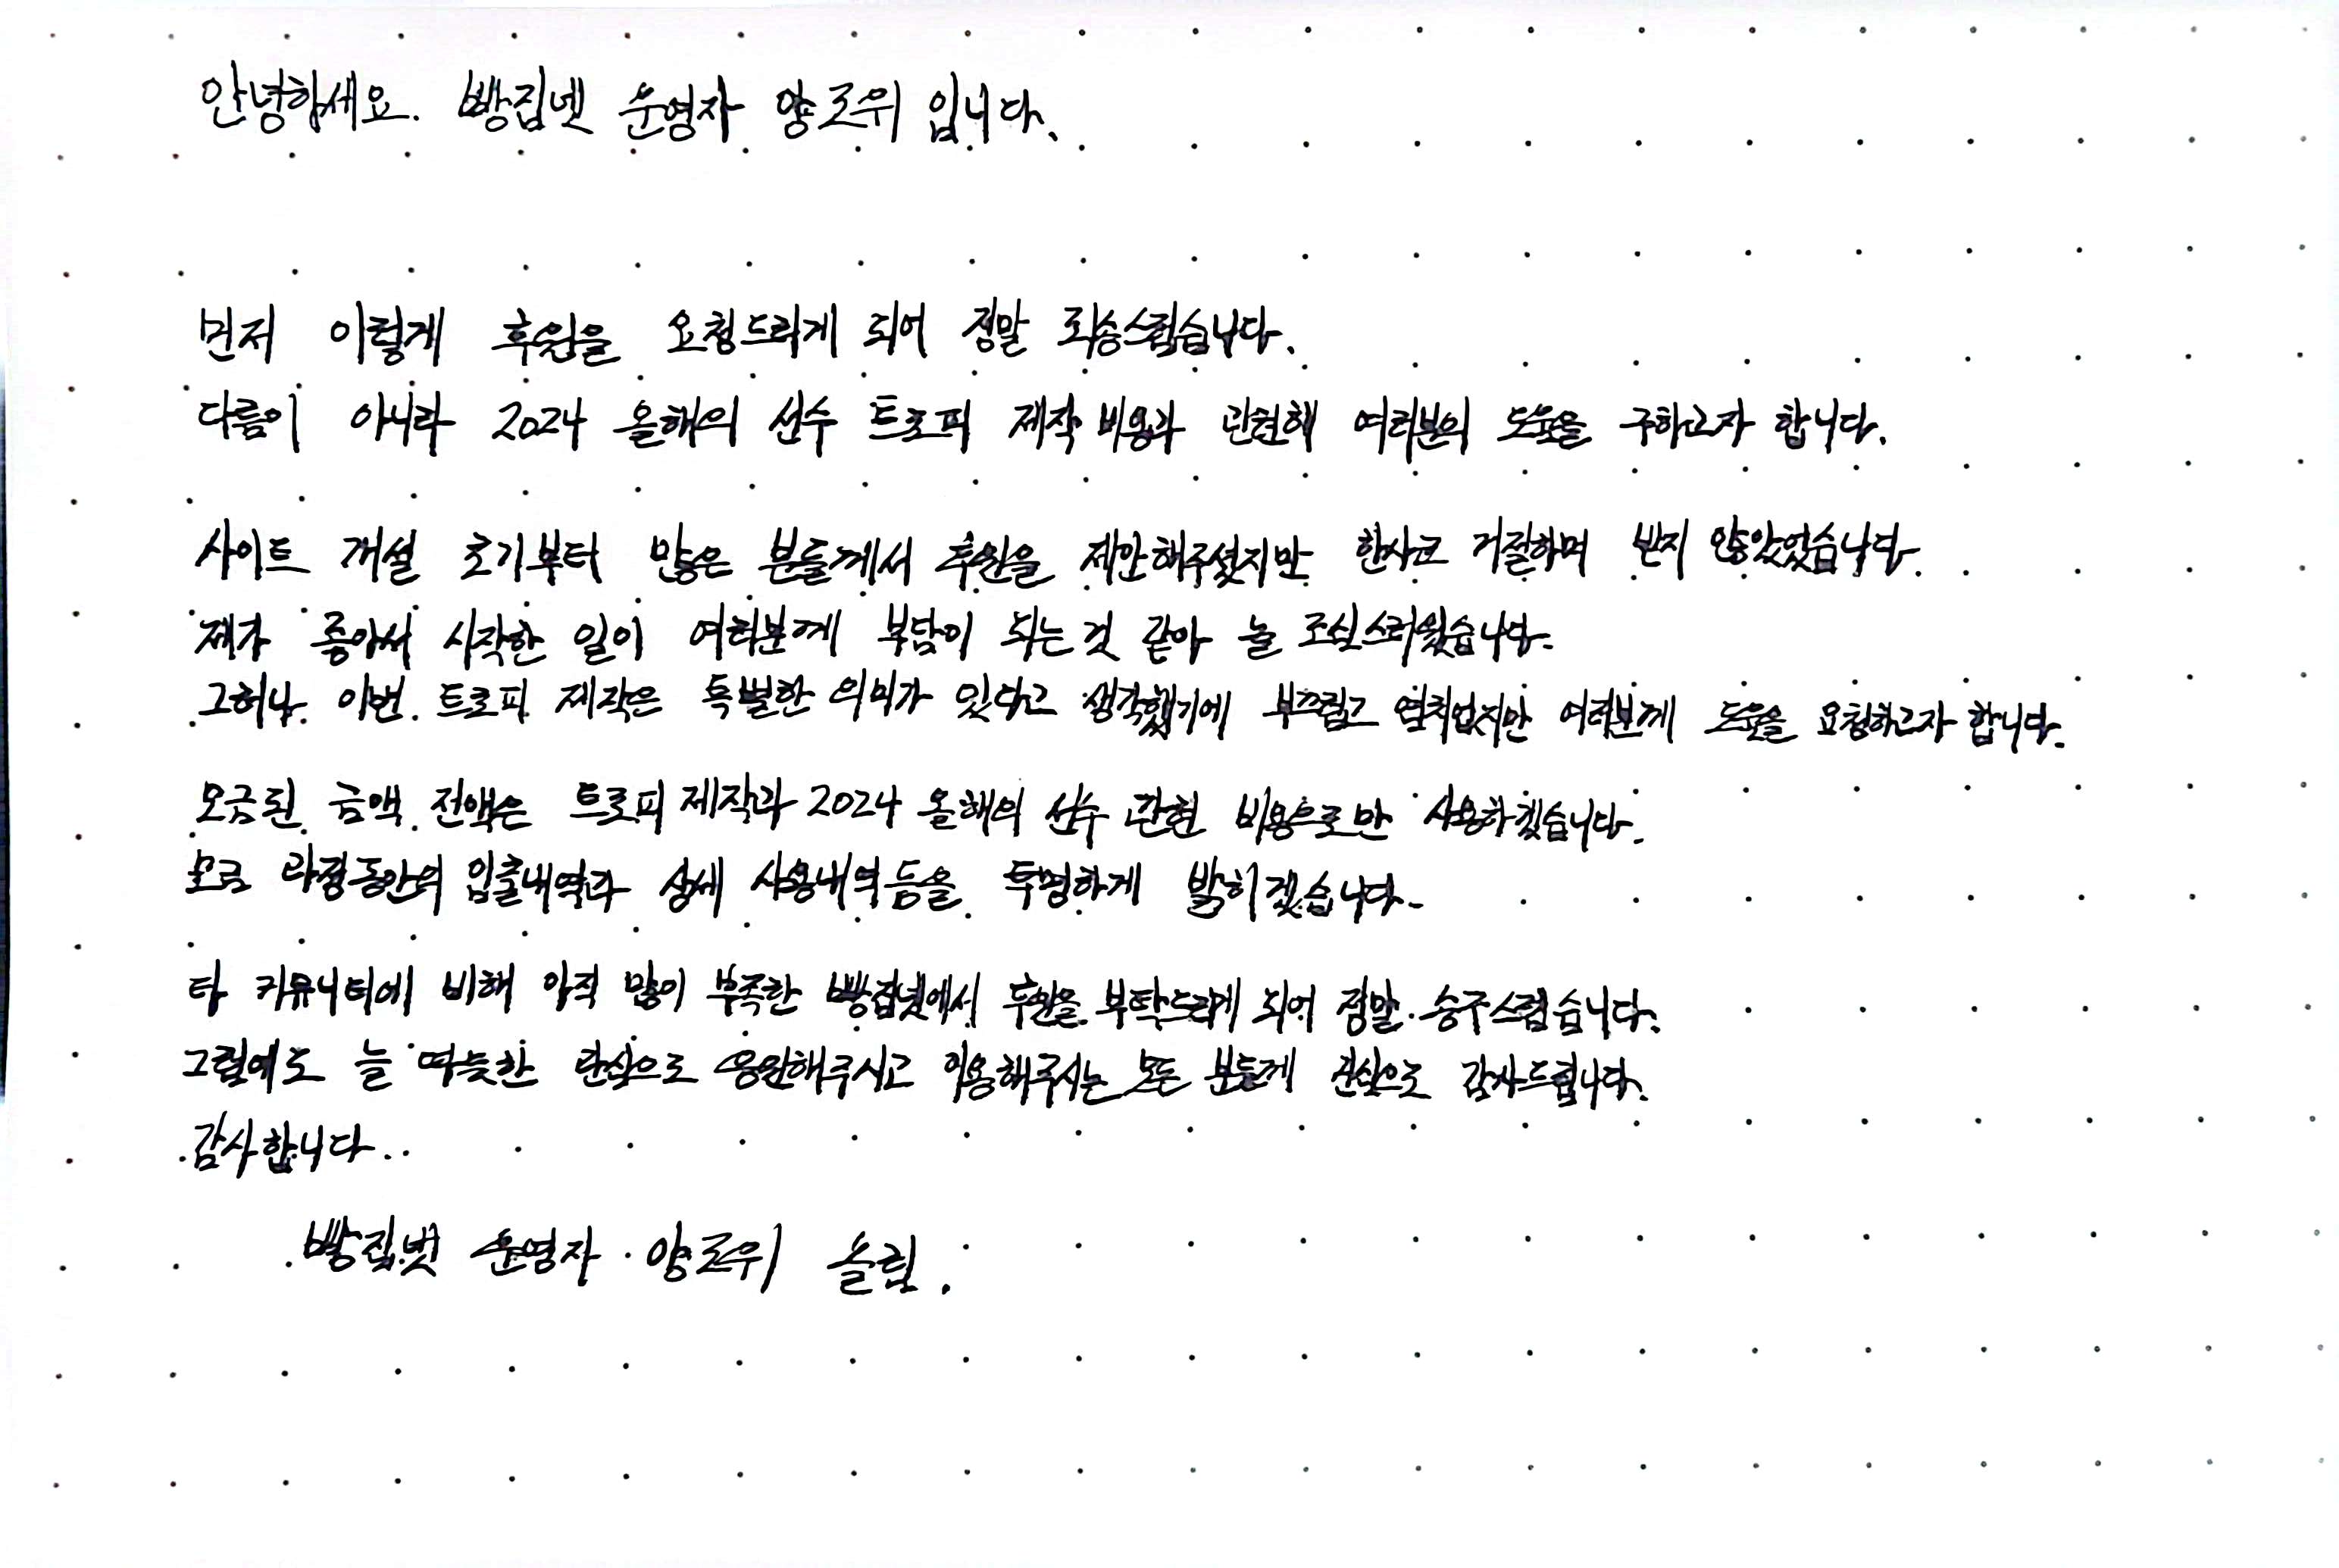 안녕하세요. 빵집넷 운영자 양로위 입니다.
먼저 이렇게 후원을 요청드리게 되어 정말 죄송스럽습니다.
다름이 아니라 2024 올해의 선수 트로피 제작 비용과 관련해 여러분의 도움을 구하고자 합니다.
사이트 개설 초기부터 많은 분들께서 후원을 제안해주셨지만 한사코 거절하며 받지 않았었습니다.
제가 좋아서 시작한 일이 여러분께 부담이 되는 것 같아 늘 조심스러웠습니다.
그러나 이번 트로피 제작은 특별한 의미가 있다고 생각했기에 부끄럽고 염치없지만 여러분께 도움을 요청하고자 합니다.
모금된 금액 전액은 트로피 제작과 2024 올해의 선수 관련 비용으로만 사용하겠습니다.
모금 과정동안의 입출내역과 상세 사용내역 등을 투명하게 밝히겠습니다.
타 커뮤니티에 비해 아직 많이 부족한 빵집넷에서 후원을 부탁드리게 되어 정말 송구스럽습니다.
그럼에도 늘 따듯한 관심으로 응원해주시고 이용해주시는 모든 분들께 진심으로 감사드립니다.
감사합니다.
빵집넷 운영자 양로위 올림.